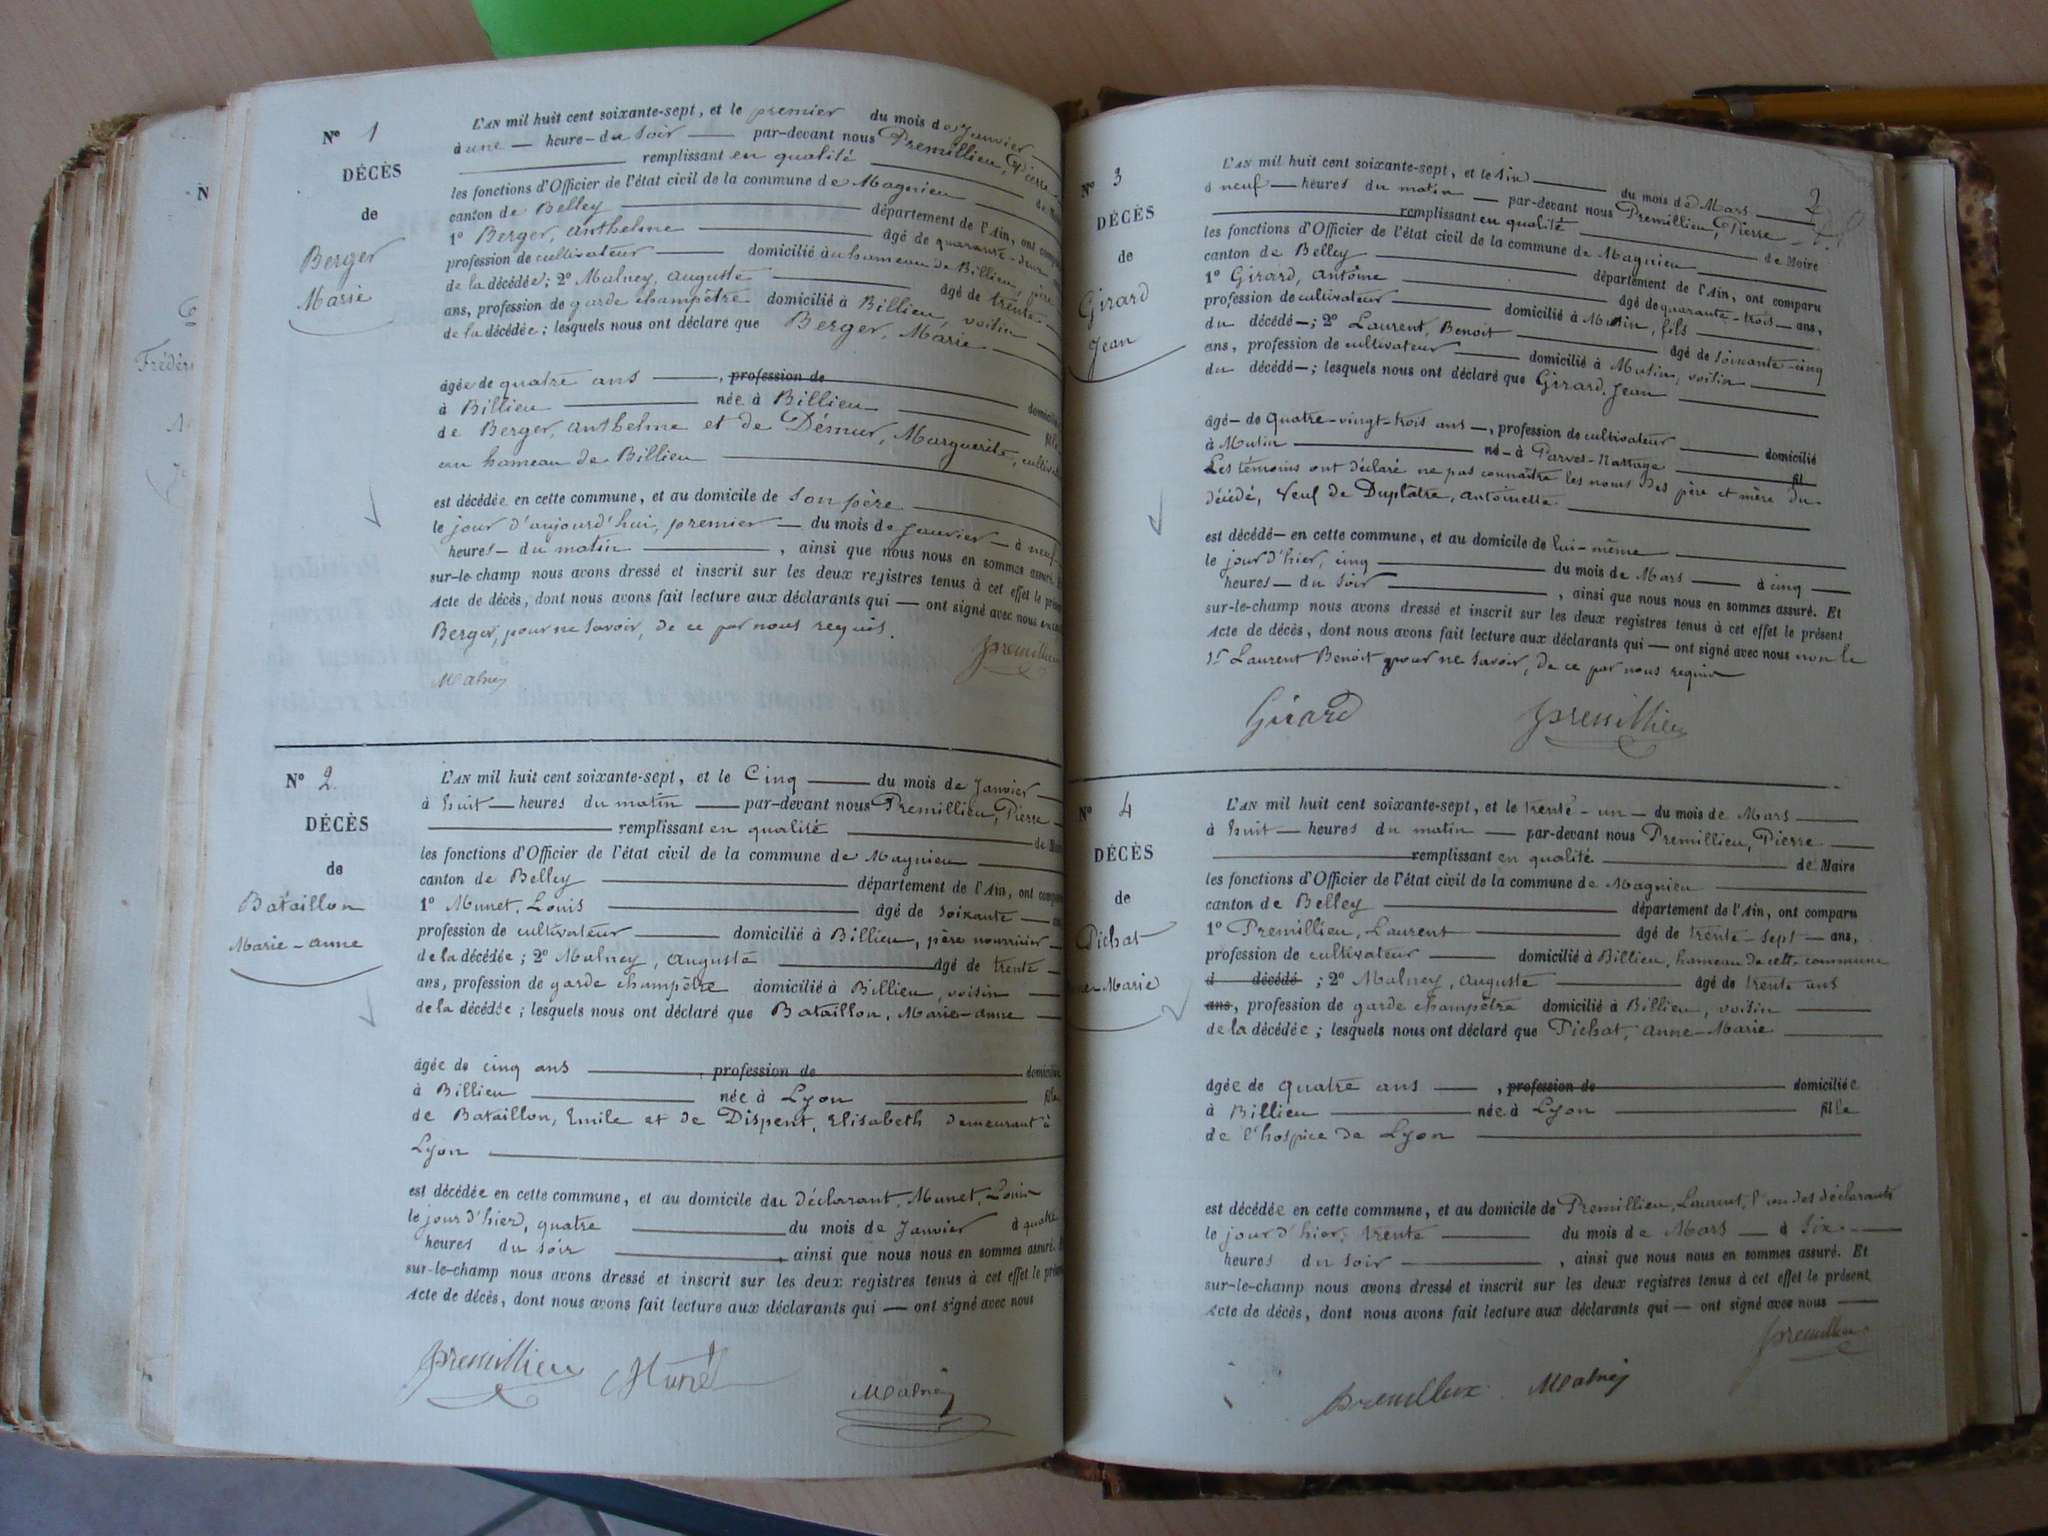 N° 1
DÉCÈS
de
Berger
Marie
L'AN mil huit cent soixante-sept, et le premier du mois de Janvier
à une heure du soir par-devant nous Premillieu, Pierre
remplissant en qualité
les fonctions d'Officier de l'état civil de la commune de Magnieu
canton de Belley département de l'Ain, ont compa
1° Berger, Anthelme âgé de quarante-deux
profession de cultivateur domicilié au hameau de Billieu, père
de la décédée; 2° Malney, Auguste âgé de trente
ans, profession de garde champêtre domicilié à Billieu, voisin
de la décédée; lesquels nous ont déclaré que Berger, Marie
âgée de quatre ans, profession de
à Billieu née à Billieu fille
de Berger, Anthelme et de Démur, Marguerite, cultivat
au hameau de Billieu
est décédée en cette commune, et au domicile de son père
le jour d'aujourd'hui, premier du mois de Janvier à neuf
heures du matin, ainsi que nous nous en sommes assuré.
sur-le-champ nous avons dressé et inscrit sur les deux registres tenus à cet effet le prése
Acte de décès, dont nous avons fait lecture aux déclarants qui — ont signé avec nous
Berger, pour ne savoir, de ce par nous requis.
Malney
Premillieu
N° 2
DÉCÈS
de
Bataillon
Marie-anne
L'AN mil huit cent soixante-sept, et le Cinq du mois de Janvier
à huit heures du matin par-devant nous Premillieu, Pierre
remplissant en qualité de Maire
les fonctions d'Officier de l'état civil de la commune de Magnieu
canton de Belley département de l'Ain, ont compa
1° Munet, Louis âgé de soixante
profession de cultivateur domicilié à Billieu, père nourricier
de la décédée; 2° Malney, Auguste âgé de trente
ans, profession de garde champêtre domicilié à Billieu, voisin
de la décédée; lesquels nous ont déclaré que Bataillon, Marie-anne
âgée de cinq ans, profession de domiciliée
à Billieu née à Lyon fille
de Bataillon, Emile et de Dispent, Elisabeth demeurant à
Lyon
est décédée en cette commune, et au domicile du déclarant, Munet, Louis
le jour d'hier, quatre du mois de Janvier à quatre
heures du soir, ainsi que nous nous en sommes assuré.
sur-le-champ nous avons dressé et inscrit sur les deux registres tenus à cet effet le prése
Acte de décès, dont nous avons fait lecture aux déclarants qui — ont signé avec nous
Premillieu Munet
Malney
2
N° 3
DÉCÈS
de
Girard
Jean
L'AN mil huit cent soixante-sept, et le six du mois de Mars
à neuf heures du matin par-devant nous Premillieu, Pierre
remplissant en qualité de Maire
les fonctions d'Officier de l'état civil de la commune de Magnieu
canton de Belley département de l'Ain, ont comparu
1° Girard, Antoine âgé de quarante-trois ans,
profession de cultivateur domicilié à Mutin, fils
du décédé; 2° Laurent, Benoit âgé de soixante-cinq
ans, profession de cultivateur domicilié à Mutin, voisin
du décédé; lesquels nous ont déclaré que Girard, Jean
âgé de quatre-vingt-trois ans, profession de cultivateur domicilié
à Mutin né à Parves-Nattage fil
Les témoins ont déclaré ne pas connaître les noms des père et mère du
décédé, Veuf de Duplâtre, Antoinette
est décédé en cette commune, et au domicile de lui-même
le jour d'hier, cinq du mois de Mars à cinq
heures du soir, ainsi que nous nous en sommes assuré. Et
sur-le-champ nous avons dressé et inscrit sur les deux registres tenus à cet effet le présent
Acte de décès, dont nous avons fait lecture aux déclarants qui — ont signé avec nous non le
Sr Laurent Benoit pour ne savoir, de ce par nous requis
Girard Premillieu
N° 4
DÉCÈS
de
Pichat
Marie
L'AN mil huit cent soixante-sept, et le trente-un du mois de Mars
à huit heures du matin par-devant nous Premillieu, Pierre
remplissant en qualité de Maire
les fonctions d'Officier de l'état civil de la commune de Magnieu
canton de Belley département de l'Ain, ont comparu
1° Premillieu, Laurent âgé de trente-sept ans,
profession de cultivateur domicilié à Billieu, hameau de cette commune
d décédé; 2° Malney, Auguste âgé de trente ans
ans, profession de garde champêtre domicilié à Billieu, voisin
de la décédée; lesquels nous ont déclaré que Pichat, Anne-Marie
âgée de quatre ans, profession de domiciliée
à Billieu née à Lyon fille
de l'hospice de Lyon
est décédée en cette commune, et au domicile de Premillieu, Laurent, l'un des déclarants
le jour d'hier, trente du mois de Mars à six
heures du soir, ainsi que nous nous en sommes assuré. Et
sur-le-champ nous avons dressé et inscrit sur les deux registres tenus à cet effet le présent
Acte de décès, dont nous avons fait lecture aux déclarants qui — ont signé avec nous
Premillieu
Premillieux Malney